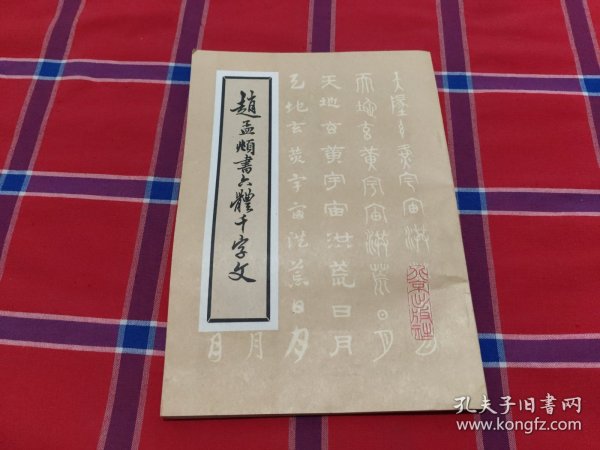 趙孟頫書六體千字文
天地玄黃宇宙洪荒日月
天地玄黃宇宙洪荒日月
天地玄黃宇宙洪荒日月
月
月
孔夫子旧書网
www.kongfz.com